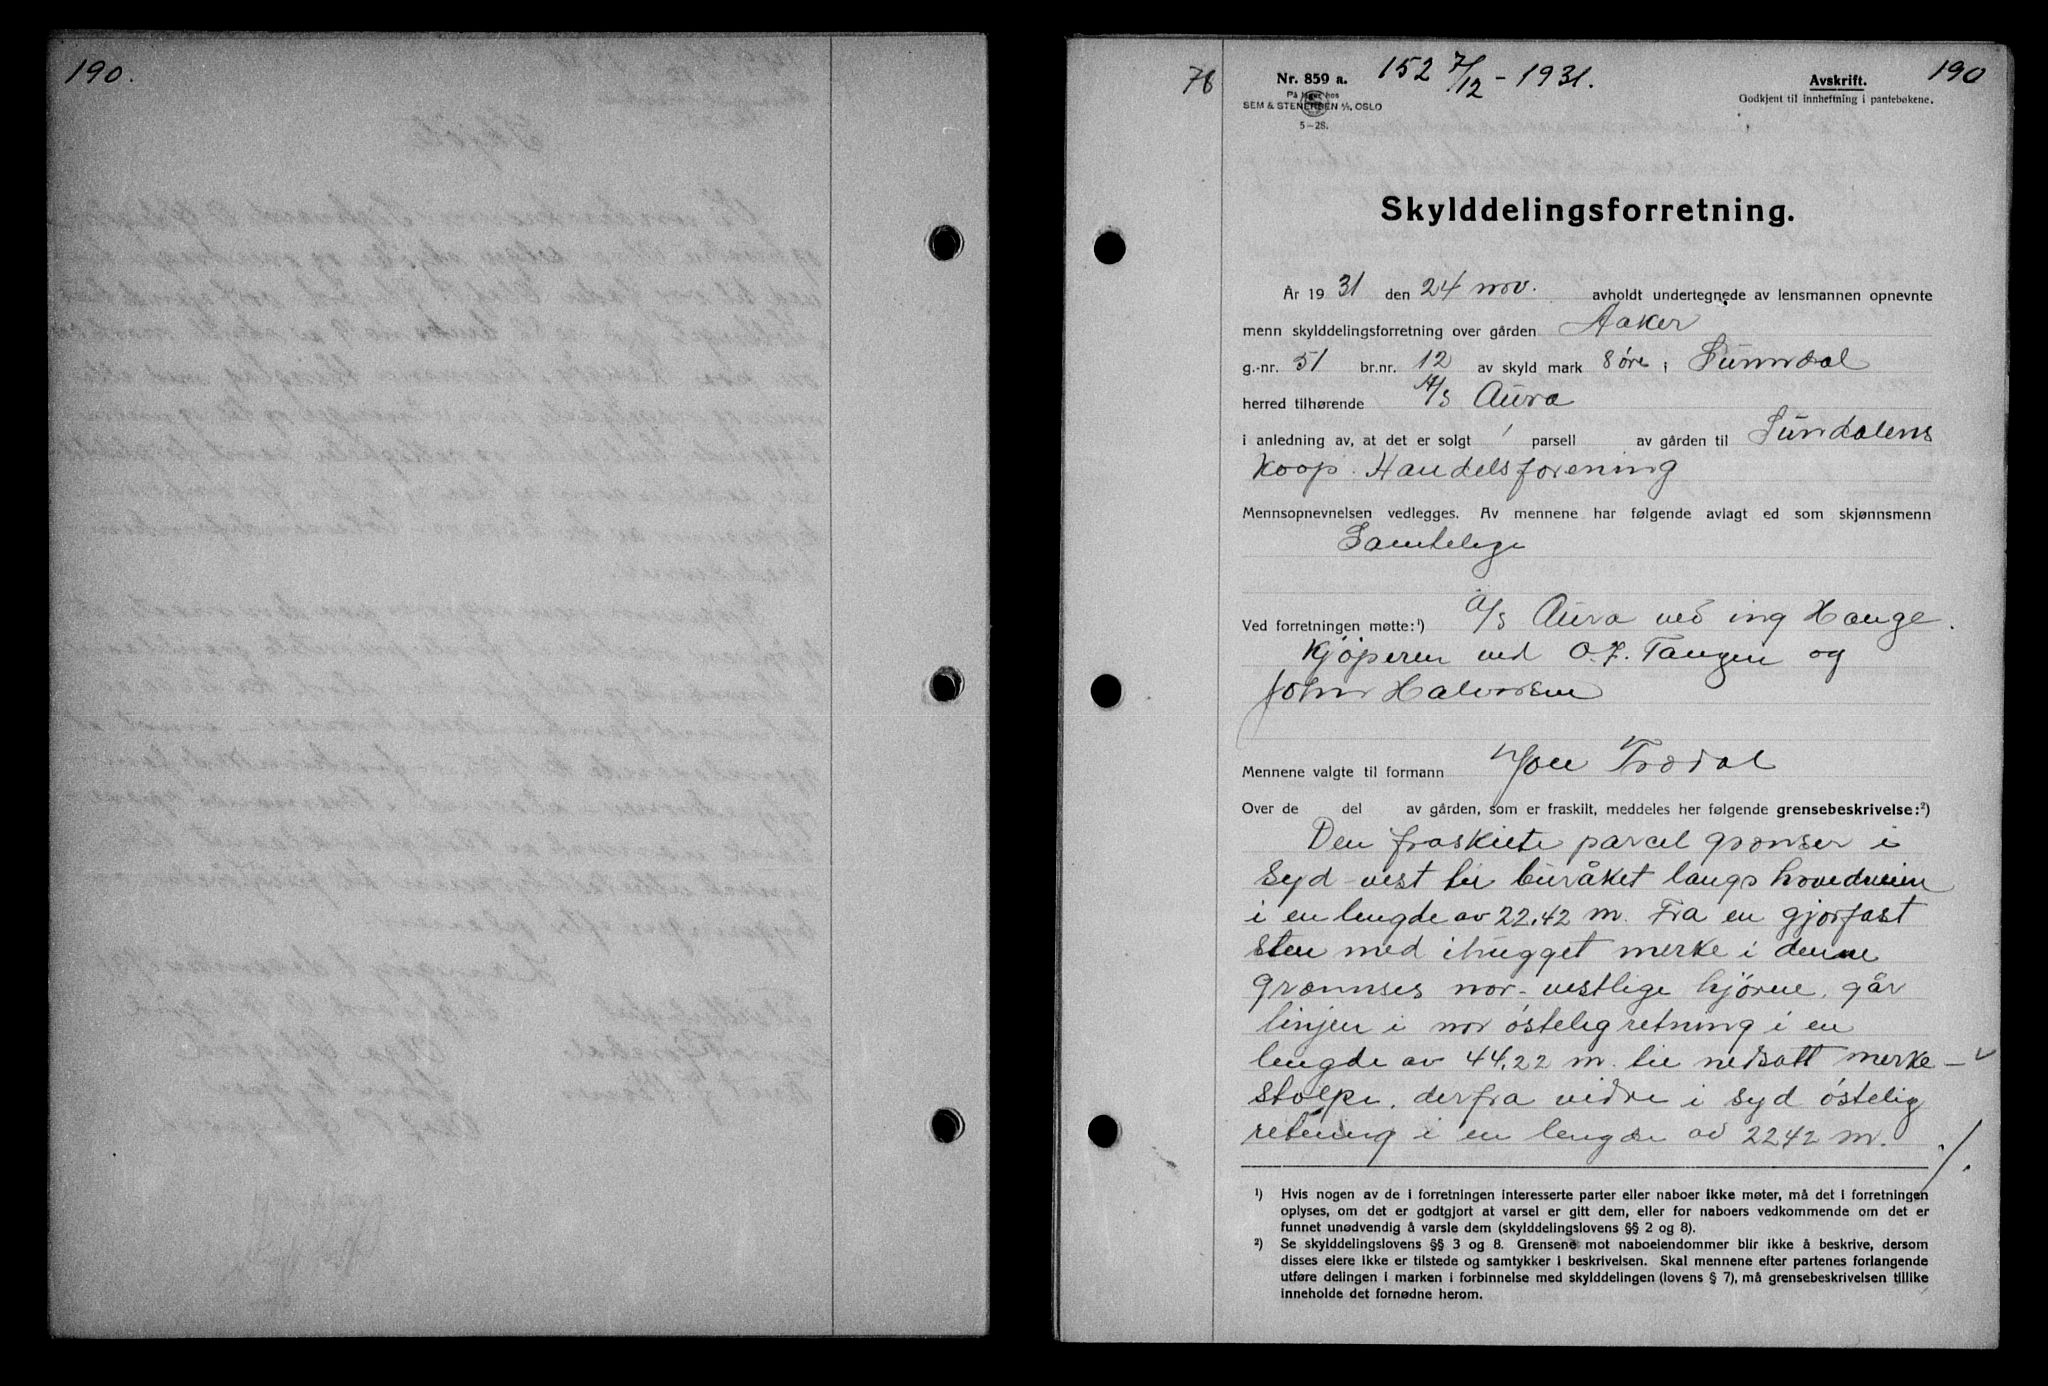 190.
78
Nr. 859 a.
152 7/12 - 1931.
Avskrift.
190
På lager hos
SEM & STENERSEN A/S, OSLO
5-28.
Godkjent til innheftning i pantebøkene.
Skylddelingsforretning.
År 1931 den 24 nov. avholdt undertegnede av lensmannen opnevnte
menn skylddelingsforretning over gården Aaker
g.-nr. 51 br.nr. 12 av skyld mark 8 øre i Sunndal
herred tilhørende A/S Aura
i anledning av, at det er solgt 1 parsell av gården til Sundalens
Koop. Handelsforening
Mennsopnevnelsen vedlegges. Av mennene har følgende avlagt ed som skjønnsmenn
Samtelige
Ved forretningen møtte:¹) A/S Aura ved ing Hauge.
Kjøperen ved O. J. Tangen og
John Halvorsen
Mennene valgte til formann Jon Trædal
Over de del av gården, som er fraskilt, meddeles her følgende grensebeskrivelse:²)
Den fraskilte parcel grenser i
Syd-vest til buråket langs hovedveien
i en lengde av 22,42 m. Fra en gjorfast
sten med ihugget merke i denne
grænnses nor-vestlige hjørne, går
linjen i nor østelig retning i en
lengde av 44,22 m. til nedsatt merke-
stolpe, derfra vidre i syd østelig
retning i en lengde av 22 42 m. ./.
¹) Hvis nogen av de i forretningen interesserte parter eller naboer ikke møter, må det i forretningen
oplyses, om det er godtgjort at varsel er gitt dem, eller for naboers vedkommende om det er
funnet unødvendig å varsle dem (skylddelingslovens §§ 2 og 8).
²) Se skylddelingslovens §§ 3 og 8. Grensene mot naboeiendommer blir ikke å beskrive, dersom
disses eiere ikke er tilstede og samtykker i beskrivelsen. Skal mennene efter partenes forlangende
utføre delingen i marken i forbinnelse med skylddelingen (lovens § 7), må grensebeskrivelsen tillike
inneholde det fornødne herom.